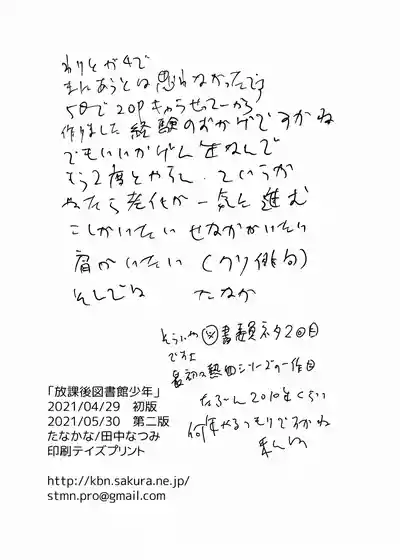 わりとガチで
まにあうとは思わなかったです
5日で20Pキャラせってーから
作りました 経験のおかげですかね
でもいいかげん
もう2度とやらん、というか
やたら老化が一気に進む
こしがいたい せなかがいたい
肩がいたい (クソ俳句)
そしでは たなか
そういや 図書館ネタ2回目
です
最初の熱血シリーズの一作目
2010年くらい
何年やるつもりですかね
「放課後図書館少年」
2021/04/29 初版
2021/05/30 第二版
たなかな/田中なつみ
印刷テイズプリント
http://kbn.sakura.ne.jp/
stmn.pro@gmail.com